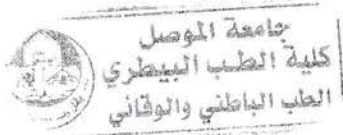 جامعة الموصل
كلية الطب البيطري
الطب الباطني والوقائي